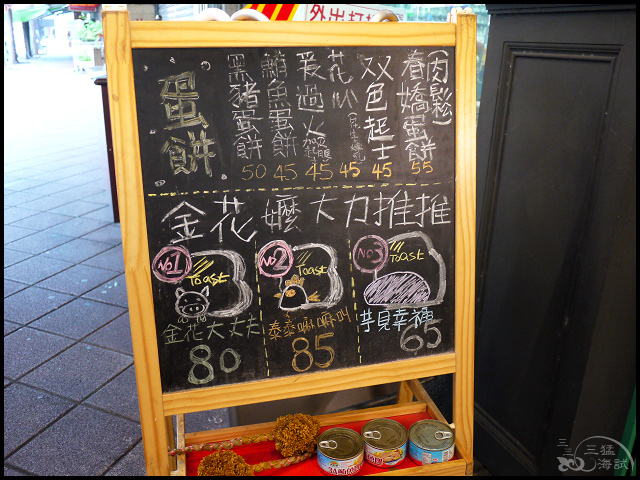 外出打
蛋餅
黑豬蛋餅 50
鮪魚蛋餅 45
愛過火 45
花心 45
双色起士 45
春嬌蛋餅(肉鬆) 55
金花孃大力推推
No1 Toast
金花大丈夫
80
No2 Toast
85
No3 Toast
芋見幸福
65
三猛
海試